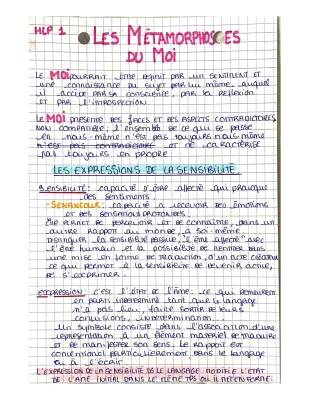 HLP 1
LES MÉTAMORPHOSES
DU MOI
LE MOI pourrait être défini par un sentiment et
une connaissance du sujet par lui même, auquel
il accède par sa conscience, par la réflexion
et par l'introspection.
LE MOI présente des faces et des aspects contradictoires,
non compatible; l'ensemble de ce qui se passe
en nous-même n'est pas toujours nous même
n'est pas contradictoire et ne caractérise
pas toujours en propre
LES EXPRESSIONS DE LA SENSIBILITÉ
SENSIBILITÉ: capacité d'être affecté qui provoque
des sentiments.
capacité à recevoir des émotions
et des sensations profondes.
Elle permet de percevoir et de connaître, dans un
autre rapport au monde, à soi-même.
Distinguer la sensibilité passive, l'"être affecté" avec
l'être humain et la possibilité de rentrer dans
une mise en forme de traduction, d'un acte créateur
ce qui permet à la sensibilité de devenir active,
de s'exprimer.
EXPRESSION: c'est l'état de l'âme. ce qui demeurent
en partie indéterminé tant que le langage
n'a pas lieu, faire sortir de leurs
confusions, indétermination.
Un symbole consiste dans l'association d'une
représentation à un élément matériel de manière
et de manifester son sens. Le rapport est
conventionnel particulièrement dans le langage
ou à l'écrit.
L'EXPRESSION DE LA SENSIBILITÉ DS LE LANGAGE MODIFIE L'ÉTAT
DE L'ÂME INITIAL DANS LE MÊME TPS OÙ IL